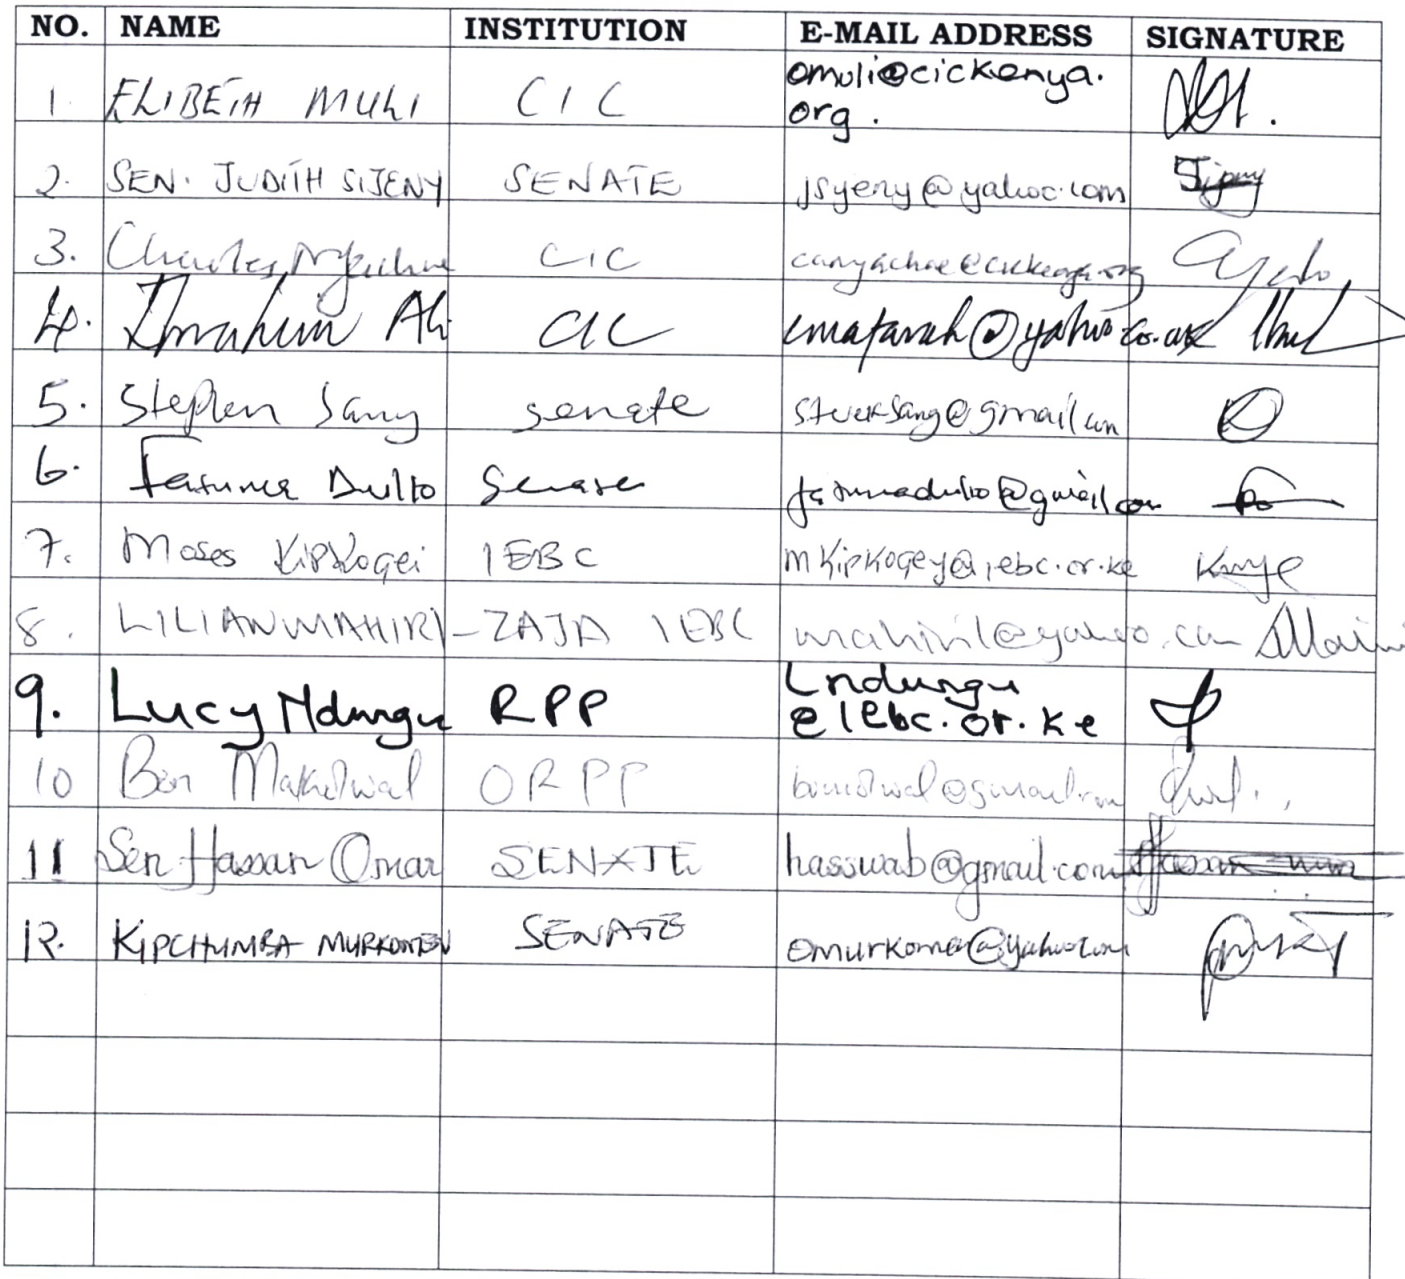 NO. NAME INSTITUTION E-MAIL ADDRESS SIGNATURE
omuli@cickenya.
1. ELIBETH MULI CIC org.
2. SEN. JUDITH SIJENY SENATE jsyeny@yahoo.com Sijeny
3. Charles Nyachae CIC canyachae@cickenya.org
4. Ibrahim Ali CIC emafarah@yahoo.co.uk
5. Stephen Sang senate
6. Fatuma Dullo Senate fatumadullo@gmail.com
7. Moses Kipkogei IEBC mkipkogey@iebc.or.ke
8. LILIAN MAHIRI-ZAJA IEBC mahiril@yahoo.com
Lndungu
9. Lucy Ndungu RPP @iebc.or.ke
10 Ben ORPP
11 Sen Hassan Omar SENATE hasswab@gmail.com
12. KIPCHUMBA MURKOMEN SENATE omurkomen@yahoo.com